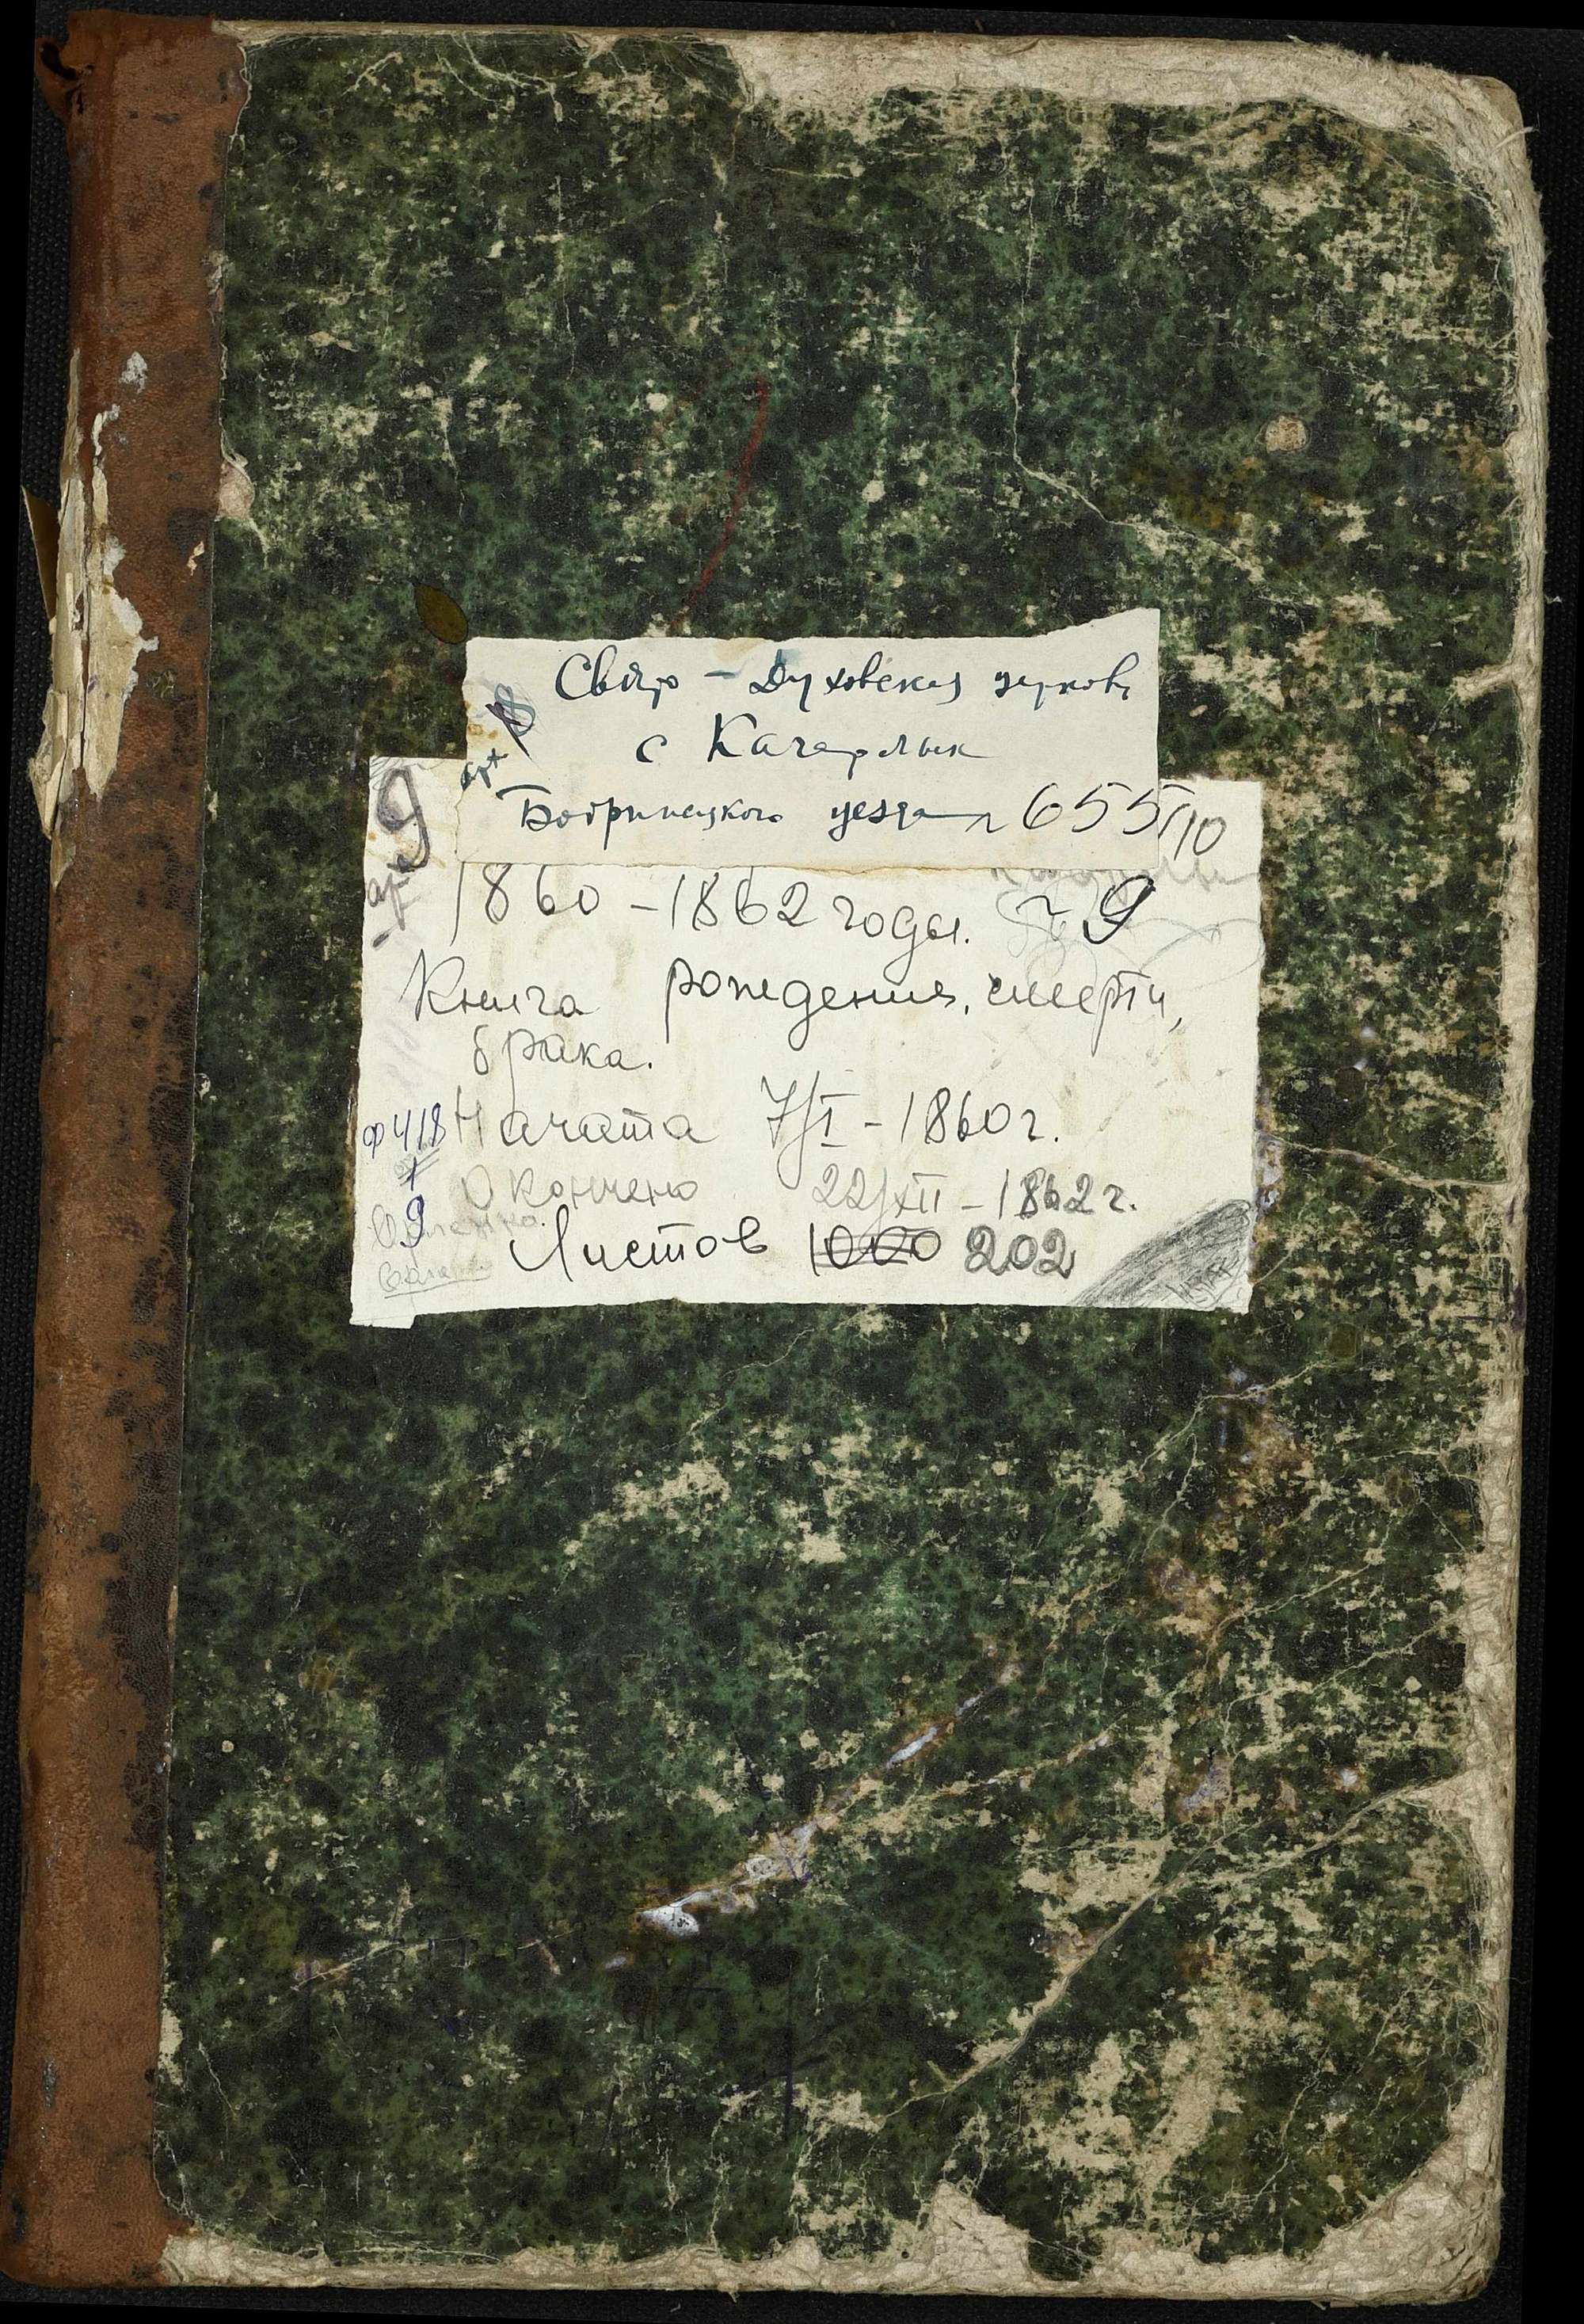 Свято - Духовская церковь
с Качарлык
Бобринецкого уезда
655/10
9
1860 - 1862 годы.
9
Книга рождения, смерти,
брака.
ф 418
Начата 7/I - 1860 г.
Окончено 22/XII - 1862 г.
9
Листов 1000 202